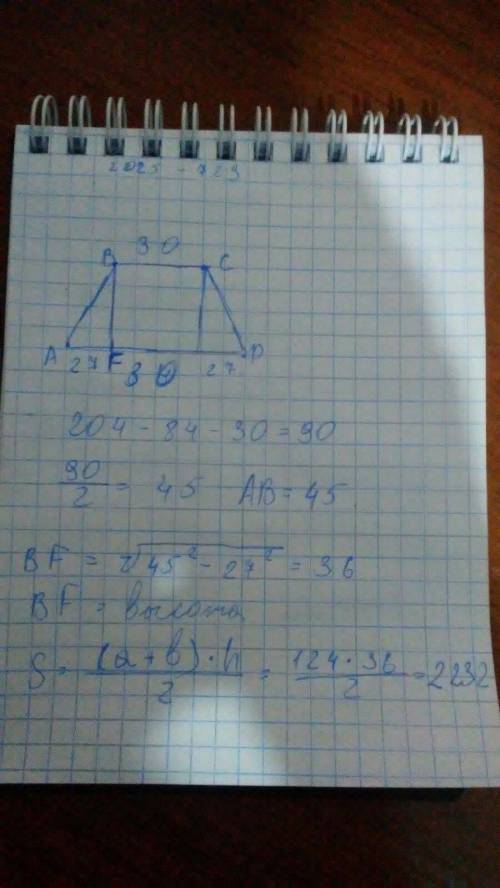 2025 - 729
30
B C
A F D
27 30 27
204 - 84 - 30 = 90
90/2 = 45 AB = 45
BF = √45² - 27² = 36
BF = высота
S = (a + b) · h / 2 = 124 · 36 / 2 = 2232